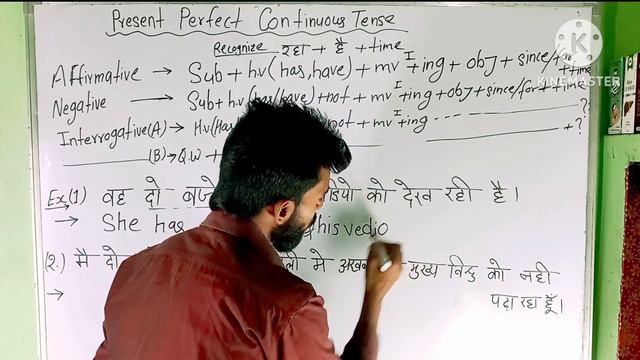 Present Perfect Continuous Tense
Recognize रहा + है + time
KINEMASTER
Affirmative → Sub + hv (has, have) + mv I + ing + obj + since/for + time
Negative → Sub + hv (has/have) + not + mv I + ing + obj + since/for + time
Interrogative (A) → Hv (Has not + mv I + ing --- ?
(B) → Q.W + + ?
Ex. (1) वह दो बजे को देख रही है ।
→ She has this vedio
(2.) मै दो मे मुख्य विन्दु को नही
→ पढ़ा रहा हूँ ।